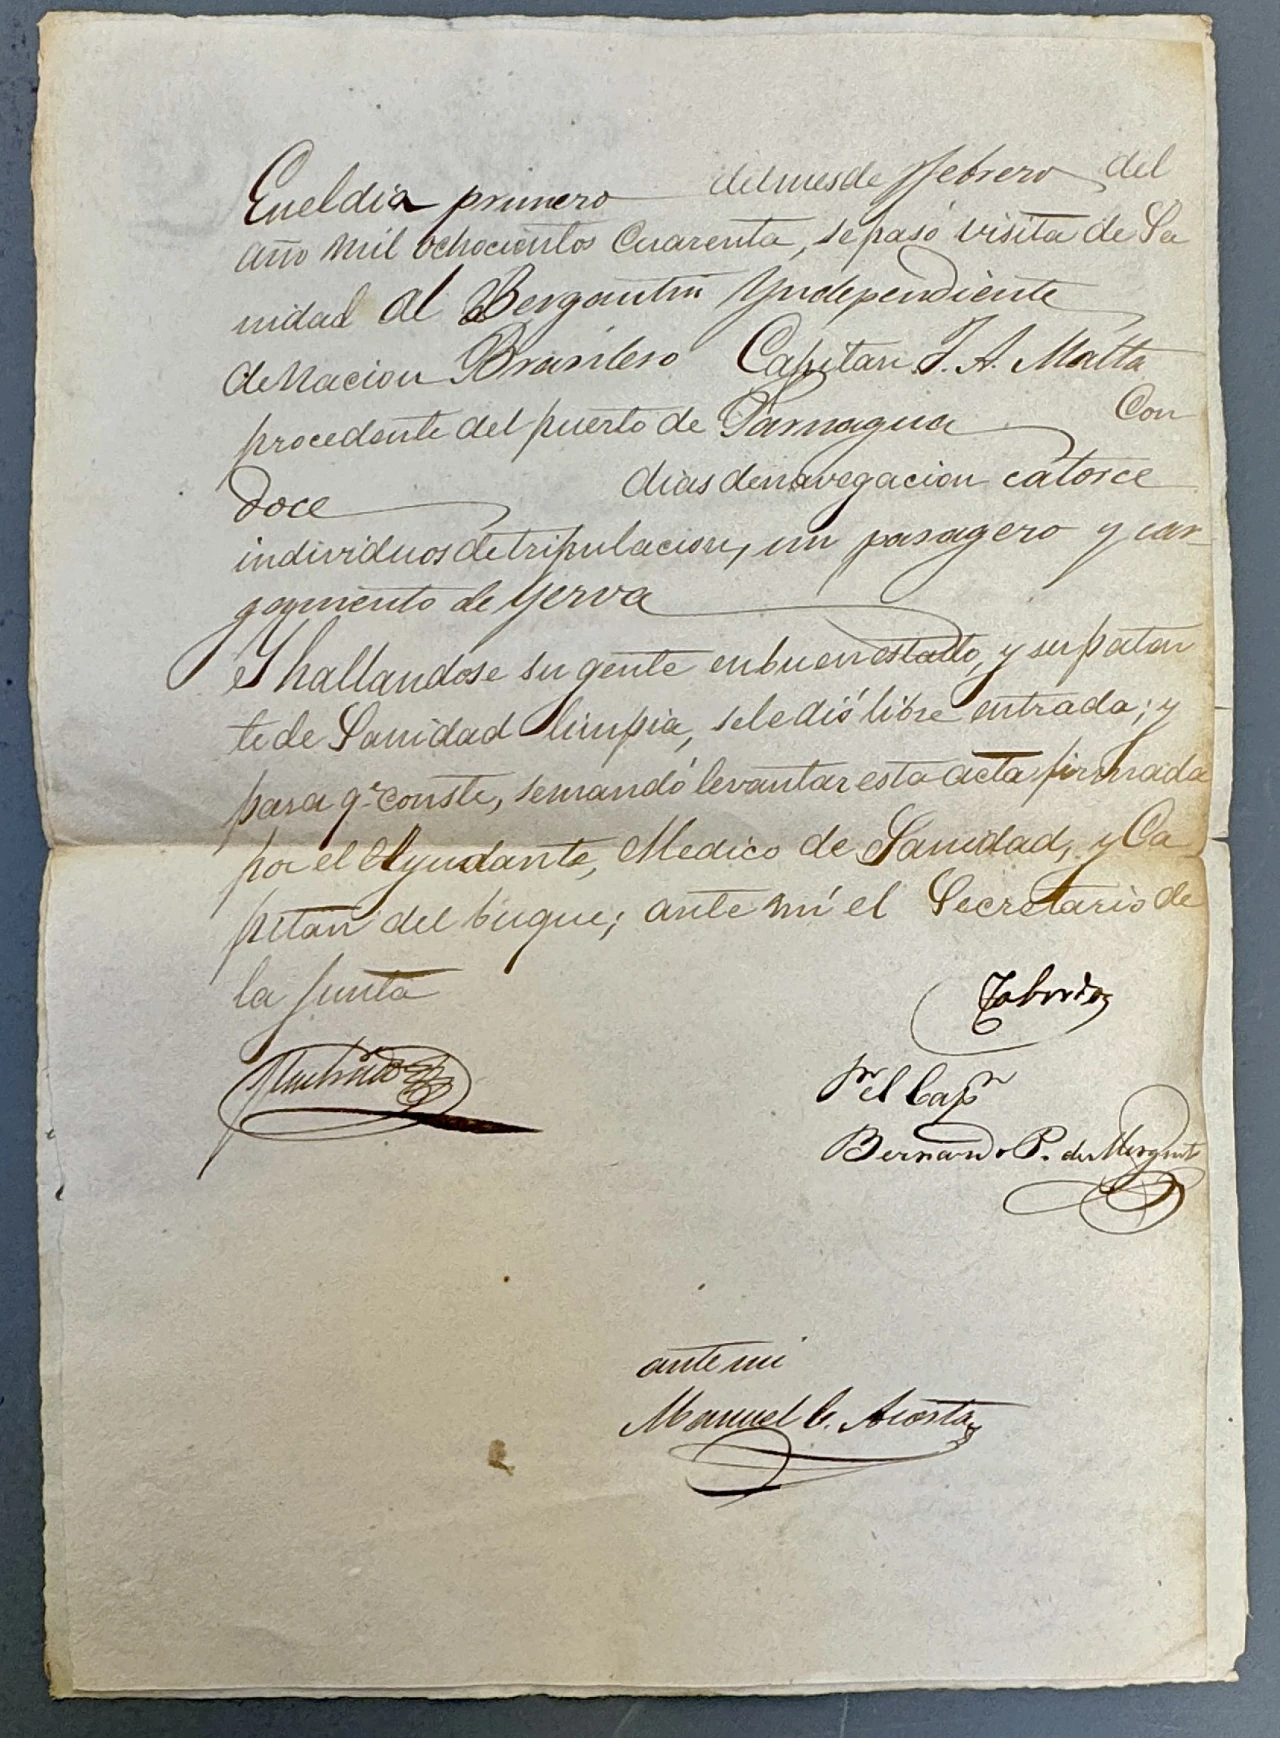 En el dia primero del mes de Febrero del
año mil ochocientos Cuarenta, se pasó visita de Sa
nidad al Bergantin Yndependiente
de Nacion Brasilero Capitan J. A. Matta
procedente del puerto de Parnagua Con
doce dias de navegacion catorce
individuos de tripulacion, un pasagero y car
gamento de Yerva
Y hallandose su gente en buen estado, y su paten
te de Sanidad limpia, se le dió libre entrada; y
para q.e conste, se mandó levantar esta acta firmada
por el Ayudante, Medico de Sanidad, y Ca
pitan del buque; ante mi el Secretario de
la Junta
P.r el Cap.n
Bernardo P. de
ante mi
Manuel C. Acosta